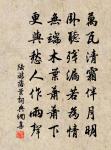 萬瓦清霜伴月明
卧聽殘漏若為情
無端木葉蕭蕭下
更與愁人作雨聲
陸游落葉詩